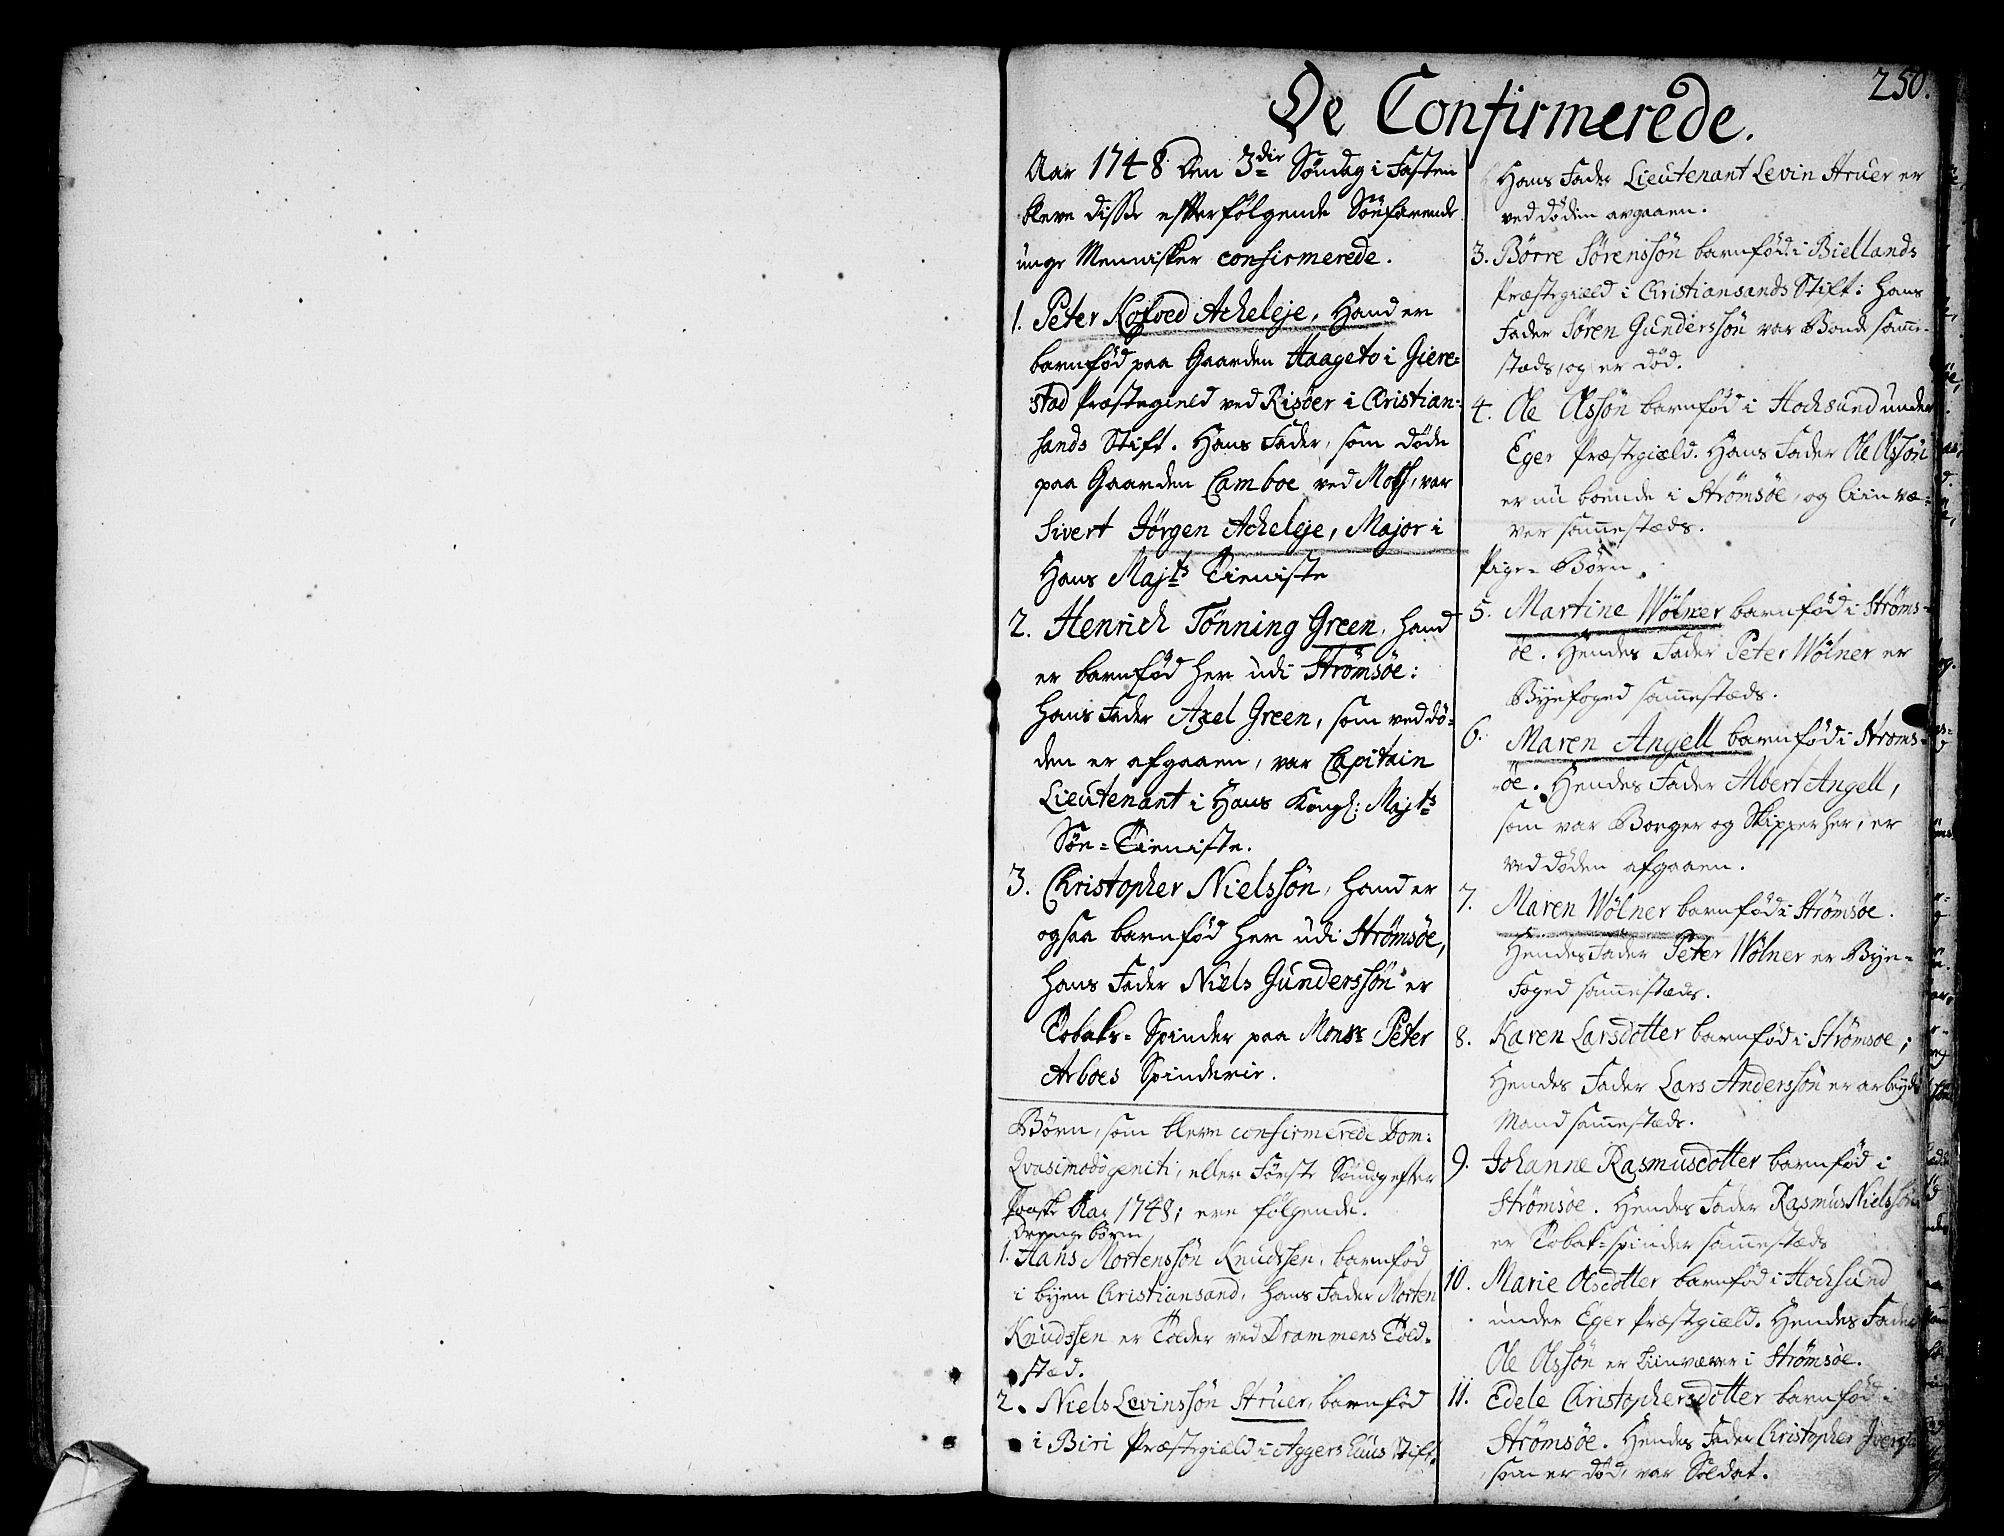 250.
De Confirmerede.
Aar 1748 den 3die Søndag i Fasten
bleve disse efterfølgende Søefarende
unge Mennisker confirmerede.
1. Peter Kofoed Acheleje, Hand er
barnfød paa Gaarden Haageto i Giere-
stad Præstegield ved Risøer i Christian-
sands Stift. Hans Fader, som døde
paa Gaarden Camboe ved Moss, var
Sivert Jørgen Acheleje, Major i
Hans Majts Tieniste
2. Henrich Tønning Green, hand
er barnfød her udi Strømsøe:
hans Fader Axel Green, som ved dø-
den er afgaaen, var Capitain
Lieutenant i Hans Kongl: Majts
Søe-Tieniste.
3. Christopher Nielssøn, hand er
ogsaa barnfød her udi Strømsøe,
hans Fader Niels Gunderssøn er
Tobaks-Spinder paa Monsr Peter
Arboes Spinderie.
Børn, som bleve confirmerede Dom:
Qvasimodogeniti, eller Første Søndag efter
Paaske Aar 1748, ere følgende.
Drenge børn
1. Hans Mortenssøn Knudssen, barnfød
i byen Christiansand, hans Fader Morten
Knudssen er Tolder ved Drammens Told-
stæd.
2. Niels Levinssøn Struer, barnfød
i Biri Præstegiæld i Aggershuus Stift.
Hans Fader Lieutenant Levin Struer er
ved døden avgaaen.
3. Børre Sørenssøn barnfød i Biellands
Præstegiæld i Christiansands Stift: Hans
Fader Søren Gunderssøn var Bonde samme-
stæds, og er død.
4. Ole Olssøn barnfød i Hochsund under
Eger Præstegiæld. Hans Fader Ole Olssøn
er nu boende i Strømsøe, og Liinvæ-
ver sammestæds.
Pige-Børn.
5. Martine Wølner barnfød i Strøms-
øe. Hendes Fader Peter Wølner er
Byefoged sammestæds.
6. Maren Angell barnfød i Strøms-
øe. Hendes Fader Albert Angell,
som var Borger og Skipper her, er
ved døden afgaaen.
7. Maren Wølner barnfød i Strømsøe.
Hendes Fader Peter Wølner er Bye-
Foged sammestæds.
8. Karen Larsdotter barnfød i Strømsøe;
Hendes Fader Lars Anderssøn er arbeyds
Mand sammestæds.
9. Johanne Rasmusdotter barnfød i
Strømsøe. Hendes Fader Rasmus Nielssøn
er Tobak-spinder sammestæds
10. Marie Olsdotter barnfød i Hochsund
under Eger Præstegiæld. Hendes Fader
Ole Olssøn er Liinvæver i Strømsøe.
11. Edele Christophersdotter barnfød i
Strømsøe. Hendes Fader Christopher
som er død, var Soldat.